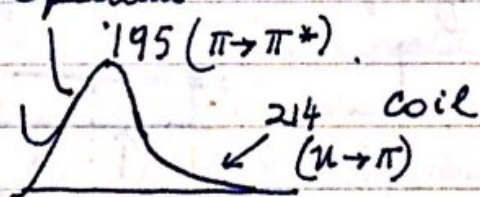 195 (π→π*).
214 coil
(n→π)